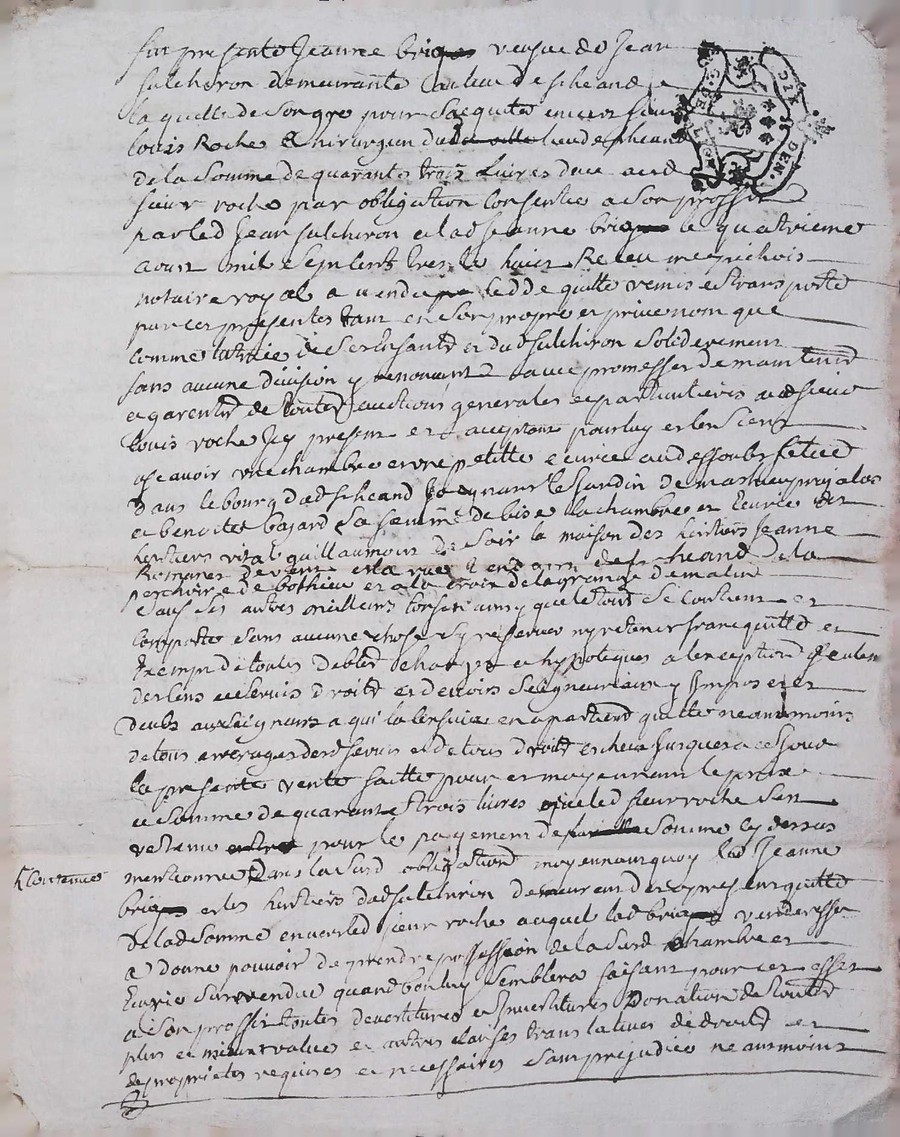 fut presente Jeanne brig veufve de Jean
fulchiron demeurante au lieu de st heand
laquelle de son gre pour sacquiter envers sieur
louis Roche Chirurgien du lieu de st heand
de la somme de quarante trois Livres deue aud
sieur roche par obligation consentie a son proffit
par led Jean fulchiron et lad Jeanne brig le quatrieme
aoust mil sept cent trente huict Receu me pichois
notaire royal a vendu cedde quitte remis et transporte
par ces presentes tant en son propre et prive nom que
comme tutrice de ses Enfants et dud fulchiron soliderement
sans aucune division y renoncant avec promesse de maintenir
et garentir de toutes auctions generales et particulieres aud sieur
Louis roche Icy present et acceptant pour luy et les siens
ascavoir une chambre et une petitte ecurie au dessoubs scitued
dans le bourg dud st heand Joignant le Jardin de mathieu
et benoite bajard sa femme de bise la chambre et Ecurie des
heritiers vital guillaumont de soir la maison des heritiers Jeanne
de vent et la rue tendant de st heand a la
de bothieu et a la croix de la grange de matin
sauf ses autres meilleurs confins ainsy que le tout se contient et
comporte sans aucune chose sy reserver ny retenir franc quitte et
Exempt de toutes debtes charges et hypoteques a lexception
des cens et servis droits et devoirs seigneuriaux y Imposes et
deubs aux seigneurs a qui la censive en apartient quitte neanmoins
de tous arrerages desd servis et de tous droits escheus Jusques a ce Jour
la presente vente faitte pour et moyennant le prix
et somme de quarante trois livres que led sieur roche sen
retenu pour le payement de somme cy dessus
K contenue
mentionnee dans la susd obligation moyennant quoy lad Jeanne
brig et les heritiers dud fulchiron demeurent des a present quitte
de lad somme envers led sieur roche auquel lad brig venderesse
a donne pouvoir de prendre possession de la susd chambre et
Ecurie sus vendue quand bon luy semblera faisant pour cet effet
a son proffit toutes devetitures et Investitures Donation de toutes
plus et mieux values et autres clauses translatives de droits et
de proprietes requises et necessaires sans prejudice neanmoins